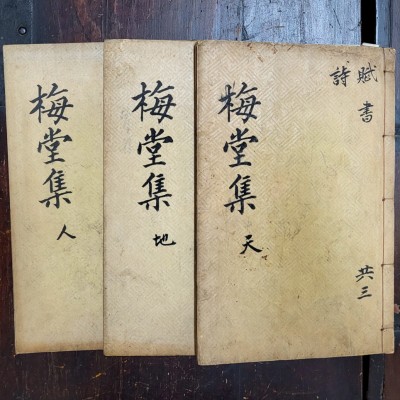 賦 書
詩
共三
梅堂集 天
梅堂集 地
梅堂集 人